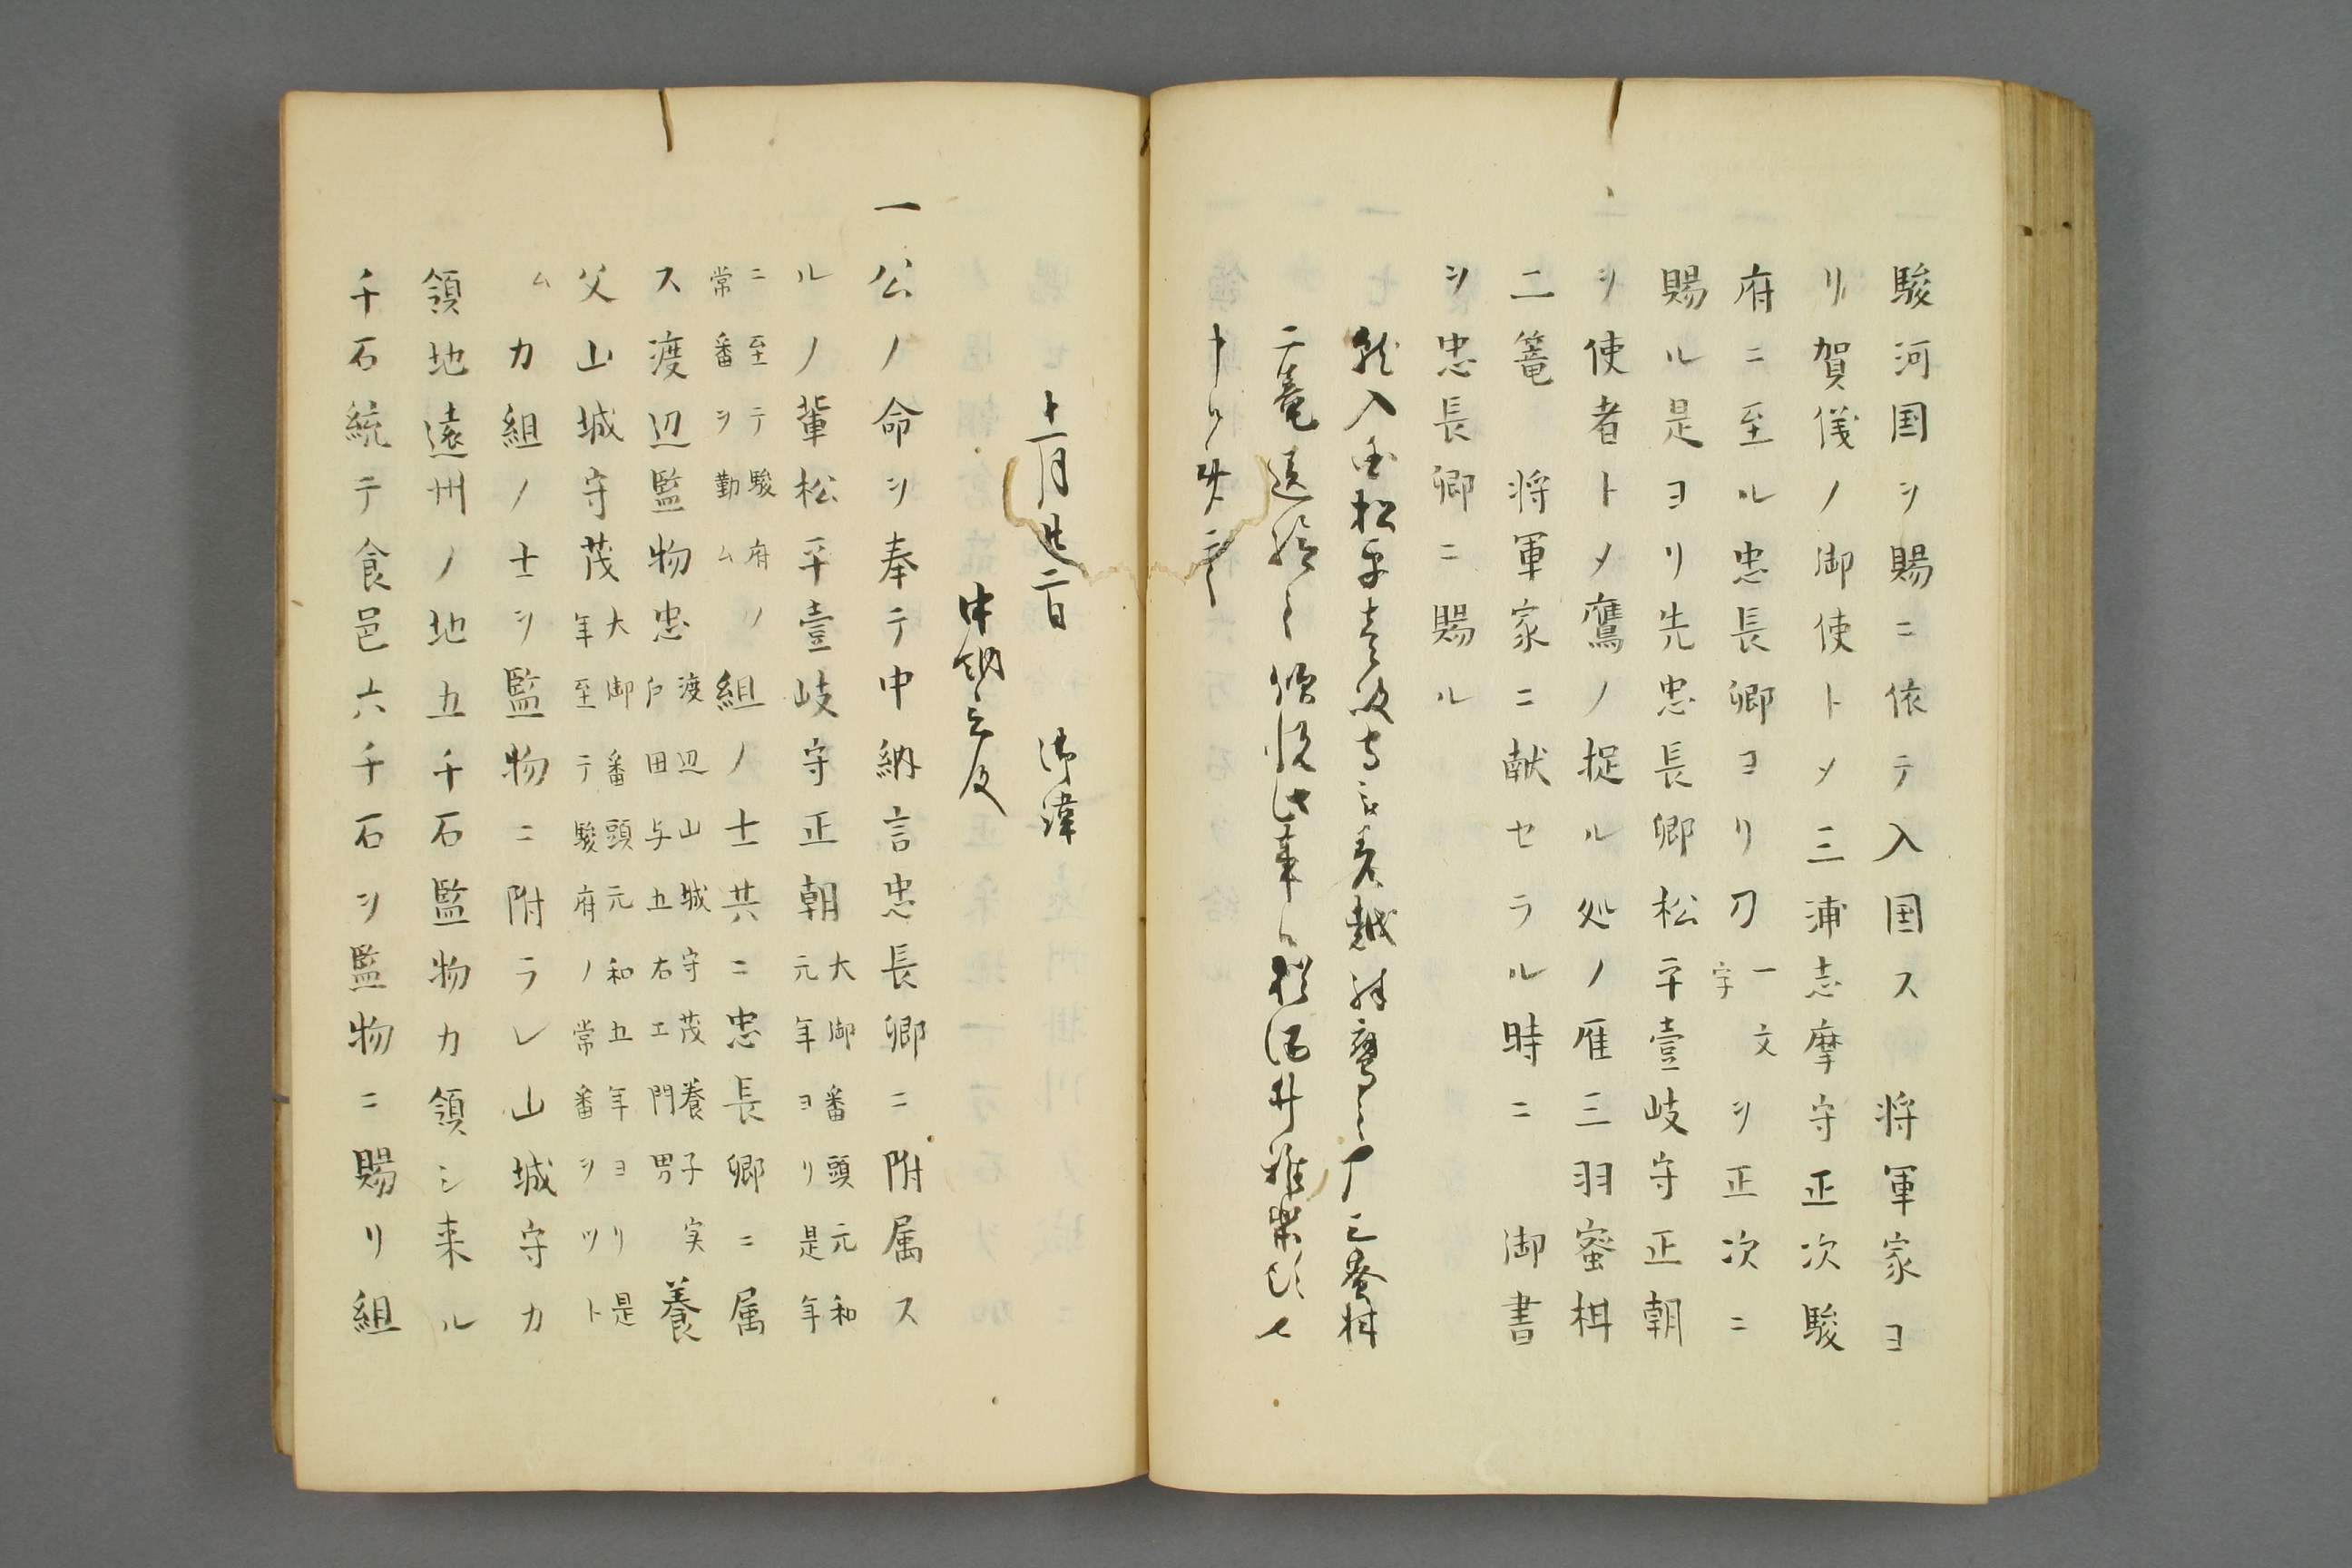 駿河国ヲ賜ニ依テ入国ス　将軍家ヨ
リ賀儀ノ御使トメ三浦志摩守正次駿
府ニ至ル忠長卿ヨリ刀一文字ヲ正次ニ
賜ル是ヨリ先忠長卿松平壹岐守正朝
ヲ使者トメ鷹ノ捉ル処ノ雁三羽蜜柑
二篭　将軍家ニ献セラル時ニ　御書
ヲ忠長卿ニ賜ル
就入国松平壱岐守
二篭
十一月廿二日　御諱
中納言殿
一公ノ命ヲ奉テ中納言忠長卿ニ附属ス
ルノ輩松平壹岐守正朝大御番頭元和
元年ヨリ是年
ニ至テ駿府ノ
常番ヲ勤ム組ノ士共ニ忠長卿ニ属
ス渡辺監物忠渡辺山城守茂養子実
戸田与五右エ門男養
父山城守茂大御番頭元和五年ヨリ是
年至テ駿府ノ常番ヲツト
ムカ組ノ士ヲ監物ニ附ラレ山城守カ
領地遠州ノ地五千石監物カ領シ来ル
千石統テ食邑六千石ヲ監物ニ賜リ組